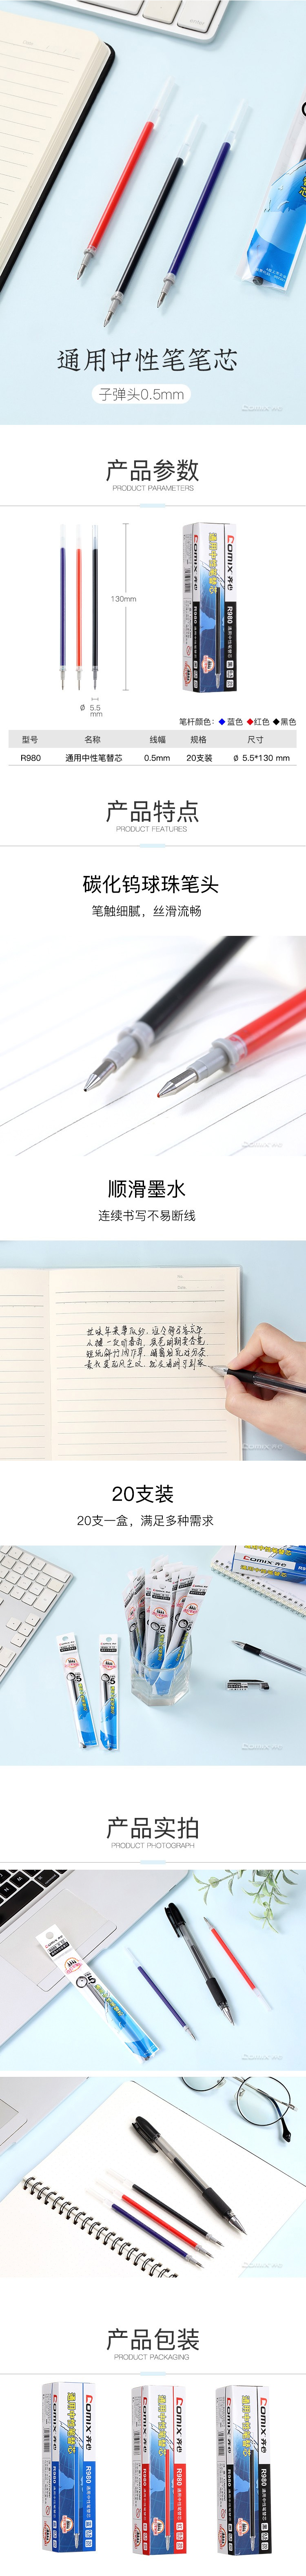 通用中性笔笔芯
子弹头0.5mm
产品参数
PRODUCT PARAMETERS
130mm
Ø 5.5
mm
COMIX 齐心
通用中性笔替芯
R980
笔杆颜色： 蓝色 红色 黑色
型号 名称 线幅 规格 尺寸
R980 通用中性笔替芯 0.5mm 20支装 Ø 5.5*130 mm
产品特点
PRODUCT FEATURES
碳化钨球珠笔头
笔触细腻，丝滑流畅
顺滑墨水
连续书写不易断线
20支装
20支一盒，满足多种需求
产品实拍
PRODUCT PHOTOGRAPH
产品包装
PRODUCT PACKAGING
COMIX 齐心
通用中性笔替芯
R980
COMIX 齐心
通用中性笔替芯
R980
COMIX 齐心
通用中性笔替芯
R980